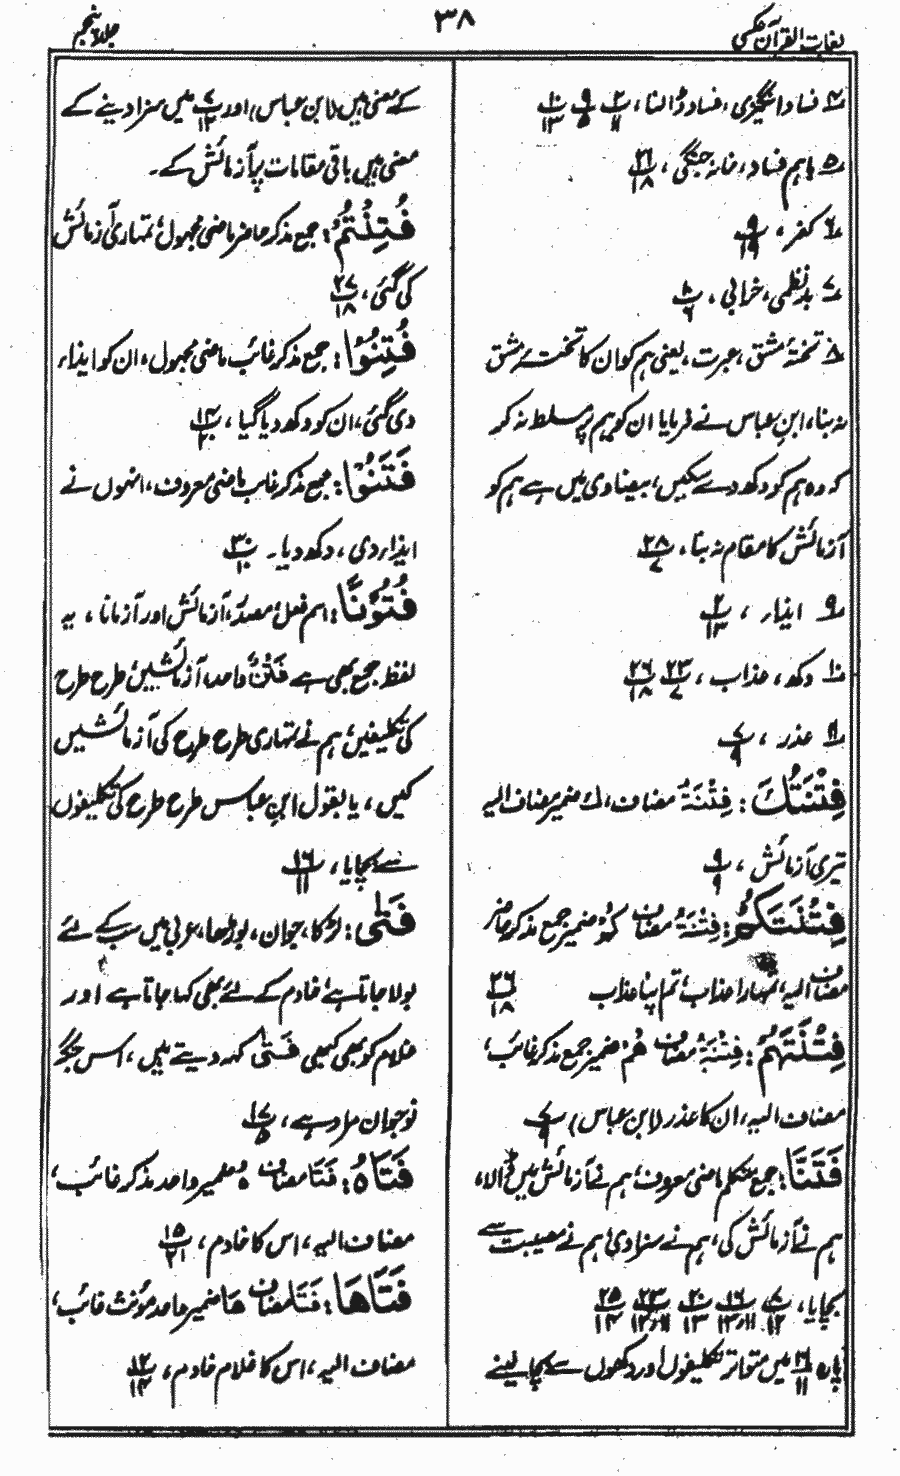 لغات القرآن عکسی
۳۸
جلد پنجم
۴؎ فساد انگیزی، فساد ڈالنا، ۲/۱۱ ۹/۵ ۱۰/۱۳
۵؎ باہم فساد، خانہ جنگی، ۲۱/۱۸
۶؎ کفر، ۹/۱۹
۷؎ بدنظمی، خرابی، ۸/۶
۸؎ تختۂ مشق، عبرت، یعنی ہم کو ان کا تختۂ مشق
نہ بنا، ابن عباس نے فرمایا ان کو ہم پر مسلط نہ کر
کہ وہ ہم کو دکھ دے سکیں، بیضاوی میں ہے ہم کو
آزمائش کا مقام نہ بنا، ۲۸/۷
۹؎ ایذاء، ۲/۱۳
۱۰؎ دکھ، عذاب، ۲۳/۷ ۲۶/۱۸
۱۱؎ عذر، ۷/۹
فِتْنَتُكَ: فِتْنَةُ مضاف، ك ضمیر مضاف الیہ
تیری آزمائش، ۹/۹
فِتْنَتَكُمْ: فِتْنَةُ مضاف كُمْ ضمیر جمع مذکر حاضر
مضاف الیہ، تمہارا عذاب، تم اپنا عذاب ۲۶/۱۸
فِتْنَتَهُمْ: فِتْنَةُ مضاف هُمْ ضمیر جمع مذکر غائب،
مضاف الیہ، ان کا عذر (ابن عباس) ۷/۹
فَتَنَّا: جمع متکلم ماضی معروف، ہم نے آزمائش میں ڈالا،
ہم نے آزمائش کی، ہم نے سزا دی، ہم نے مصیبت سے
بچایا، ۷/۱۲ ۱۶/۱۱،۱۳ ۲۰/۱۳ ۲۳/۱۱،۱۲ ۲۵/۱۴
پارہ ۱۶/۱۱ میں متواتر تکلیفوں اور دکھوں سے بچا لینے
کے معنی ہیں (ابن عباس) اور ۷/۱۲ میں سزا دینے کے
معنی ہیں باقی مقامات پر آزمائش کے۔
فُتِنْتُمْ: جمع مذکر حاضر ماضی مجہول، تمہاری آزمائش
کی گئی، ۲۷/۱۸
فُتِنُوْا: جمع مذکر غائب ماضی مجہول، ان کو ایذاء
دی گئی، ان کو دکھ دیا گیا، ۱۴/۲۰
فَتَنُوْا: جمع مذکر غائب ماضی معروف، انہوں نے
ایذاء دی، دکھ دیا۔ ۳۰/۱۰
فُتُوْنًا: اسم فعل، مصدر، آزمائش اور آزمانا، یہ
لفظ جمع بھی ہے فَتْنٌ واحد، آزمائشیں، طرح طرح
کی تکلیفیں، ہم نے تمہاری طرح طرح کی آزمائشیں
کیں، یا بقول ابن عباس طرح طرح کی تکلیفوں
سے بچایا، ۱۶/۱۱
فَتًى: لڑکا، جوان، بوڑھا، عربی میں سب کے لئے
بولا جاتا ہے، خادم کے لئے بھی کہا جاتا ہے اور
غلام کو بھی کبھی فَتًى کہہ دیتے ہیں، اس جگہ
نوجوان مراد ہے، ۱۷/۵
فَتَاهُ: فَتَا مضاف هُ ضمیر واحد مذکر غائب،
مضاف الیہ، اس کا خادم، ۱۵/۲۱
فَتَاهَا: فَتَا مضاف هَا ضمیر واحد مؤنث غائب،
مضاف الیہ، اس کا غلام خادم، ۱۲/۱۴